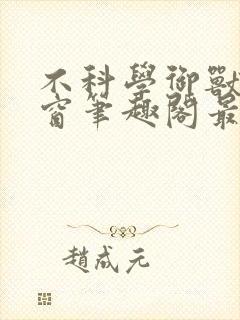 不科學御獸
窗筆趣閣最
趙成元